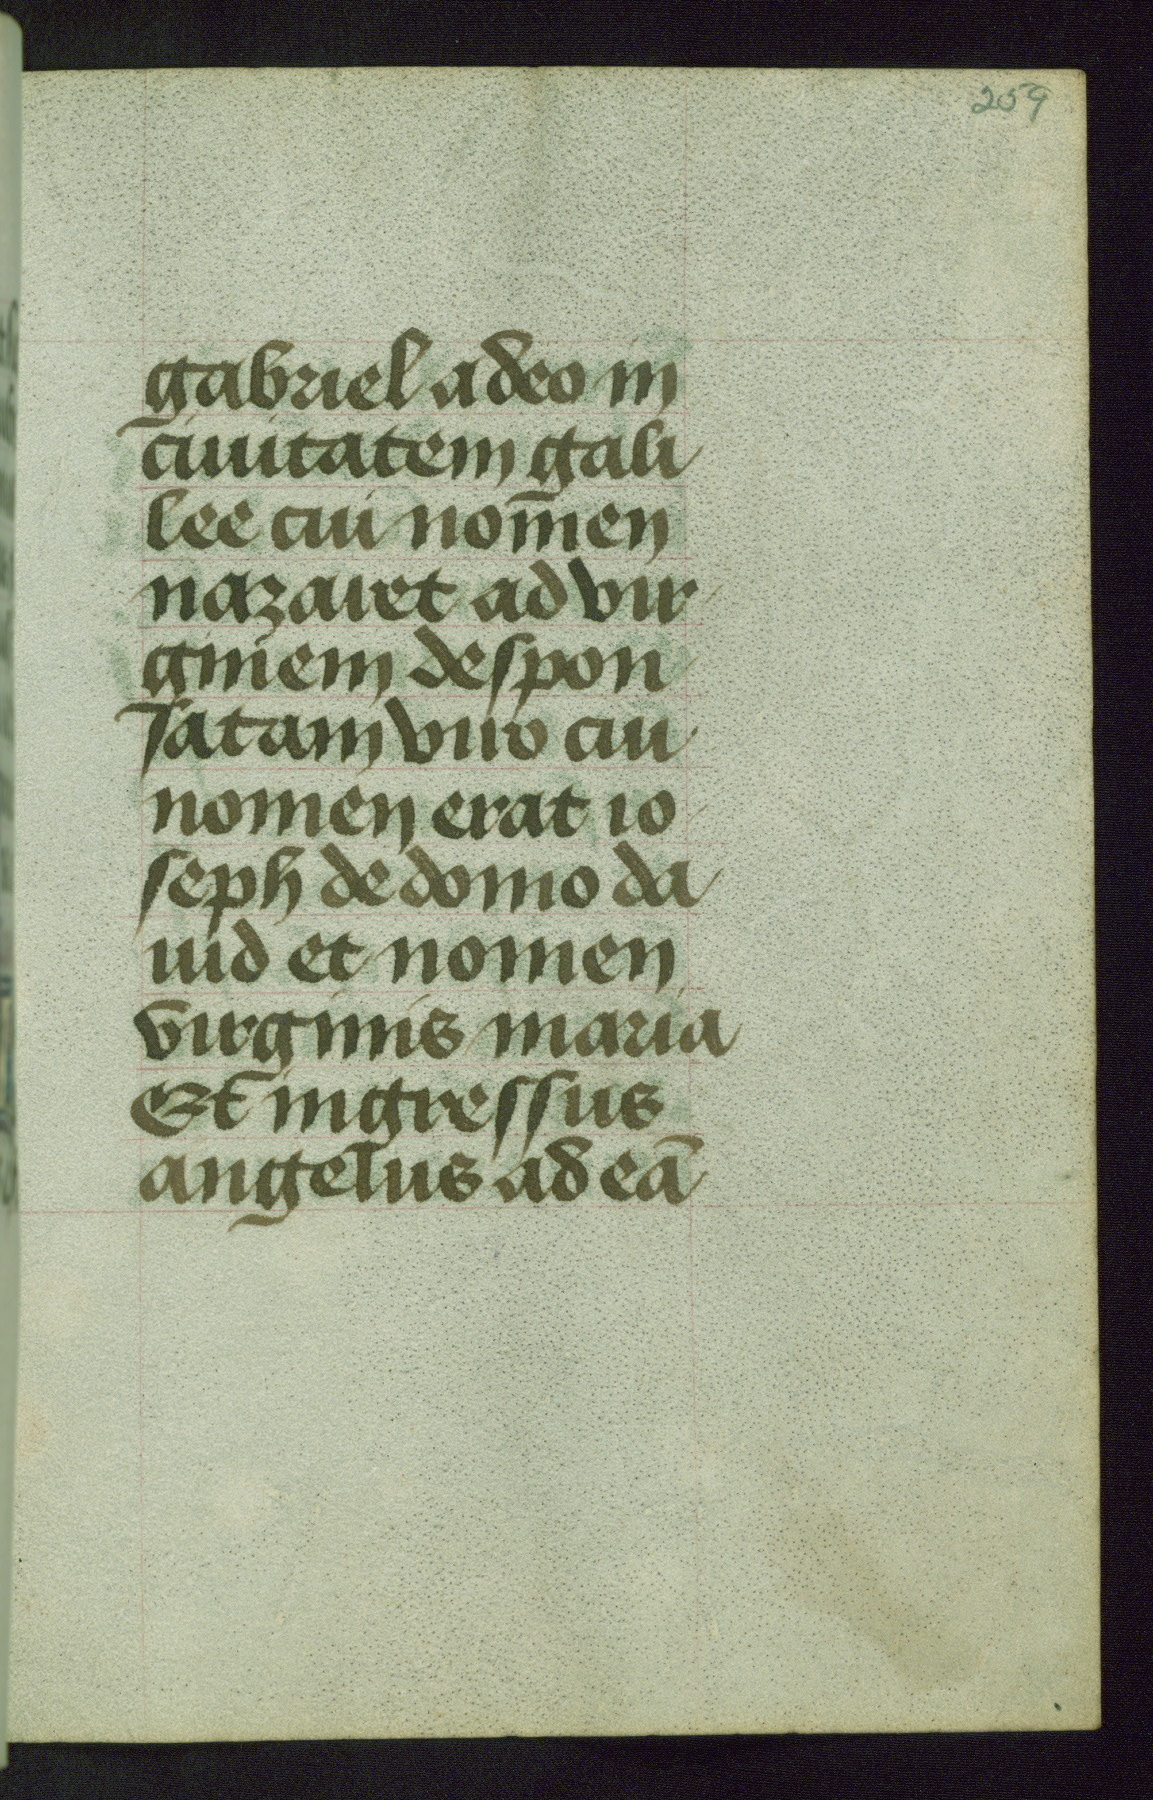 259
gabriel a deo in
ciuitatem gali
lee cui nomen
nazaret ad vir
ginem despon
satam viro cui
nomen erat io
seph de domo da
uid et nomen
virginis maria
Et ingressus
angelus ad eā